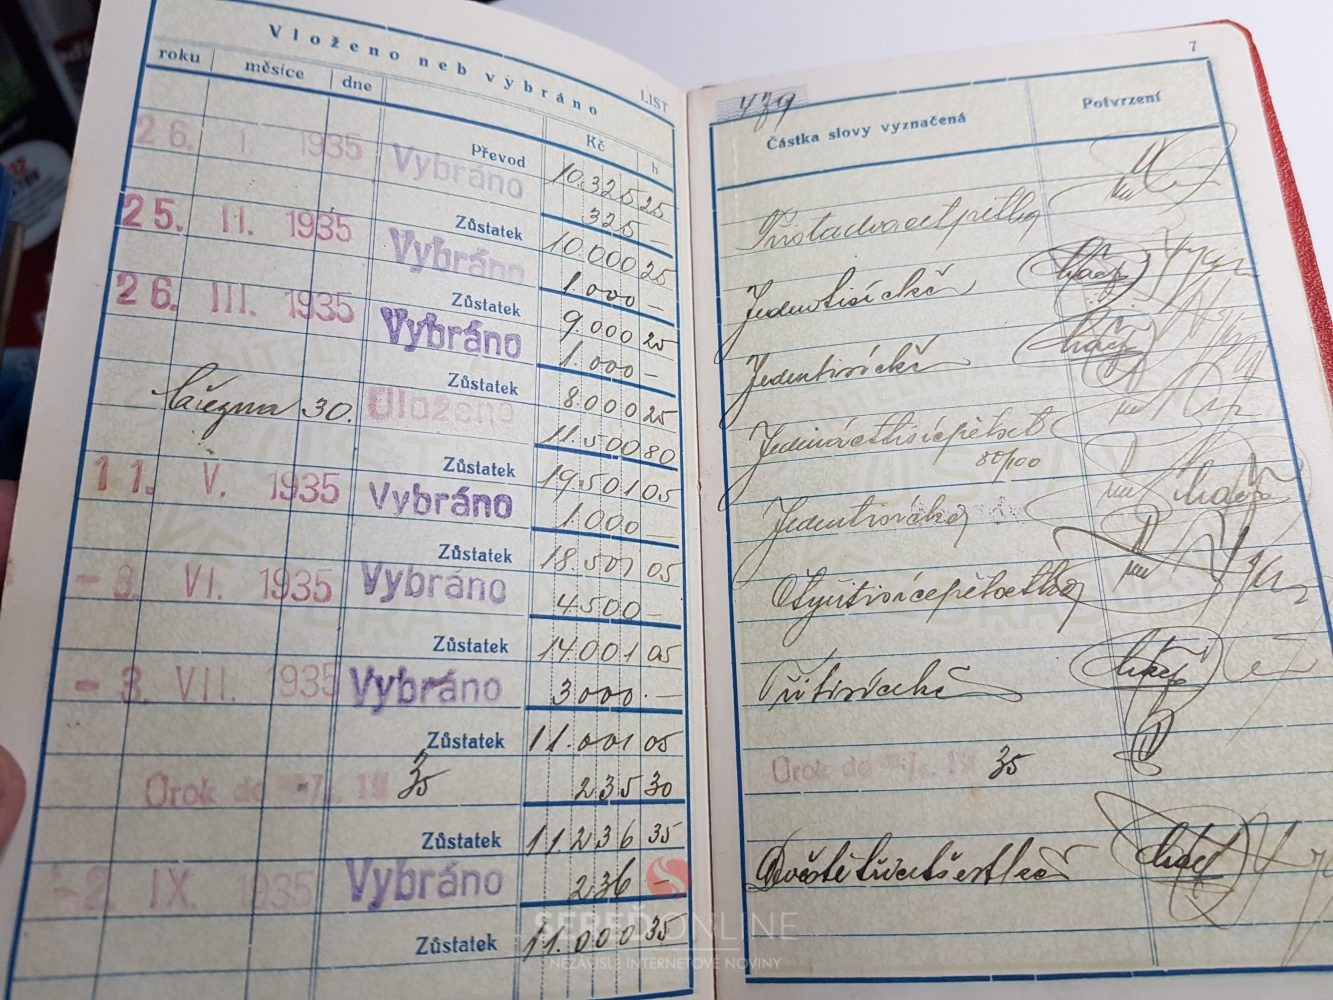 Vloženo neb vybráno
LIST
roku měsíce dne Kč h
Převod 10.325 25
26. I. 1935 Vybráno 325 —
Zůstatek 10.000 25
25. II. 1935 Vybráno 1.000 —
Zůstatek 9.000 25
26. III. 1935 Vybráno 1.000 —
Zůstatek 8.000 25
března 30. Uloženo 11.500 80
Zůstatek 19.501 05
11. V. 1935 Vybráno 1.000 —
Zůstatek 18.501 05
- 3. VI. 1935 Vybráno 4.500 —
Zůstatek 14.001 05
- 3. VII. 1935 Vybráno 3000.—
Zůstatek 11.001 05
Úrok do 35 235 30
Zůstatek 11.236 35
2. IX. 1935 Vybráno 236 —
Zůstatek 11.000 35
7
479
Částka slovy vyznačená Potvrzení
Třistadvacetpětkč
Jedentisíckč
Jedentisíckč
Jedenácttisícpětset
80/100
Jedentisíckč
Čtyřitisícepětsetkč
Třitisícekč
Úrok do 35
Dvěstětřicetšestkč
SEREĎONLINE
NEZÁVISLÉ INTERNETOVÉ NOVINY